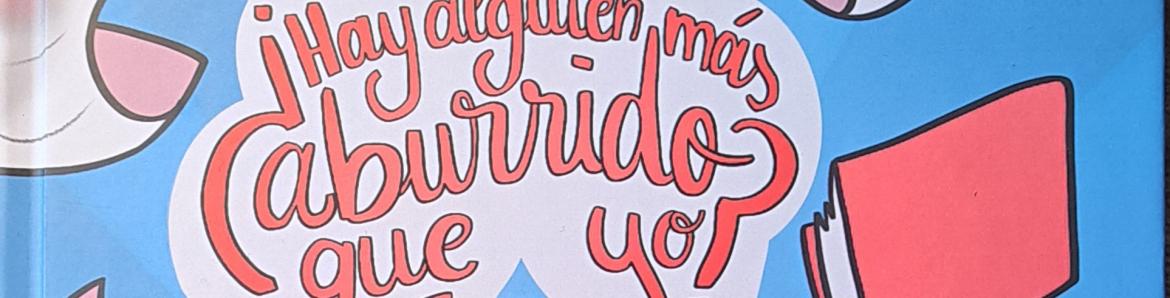 ¿Hay alguien más
aburrido
que yo?